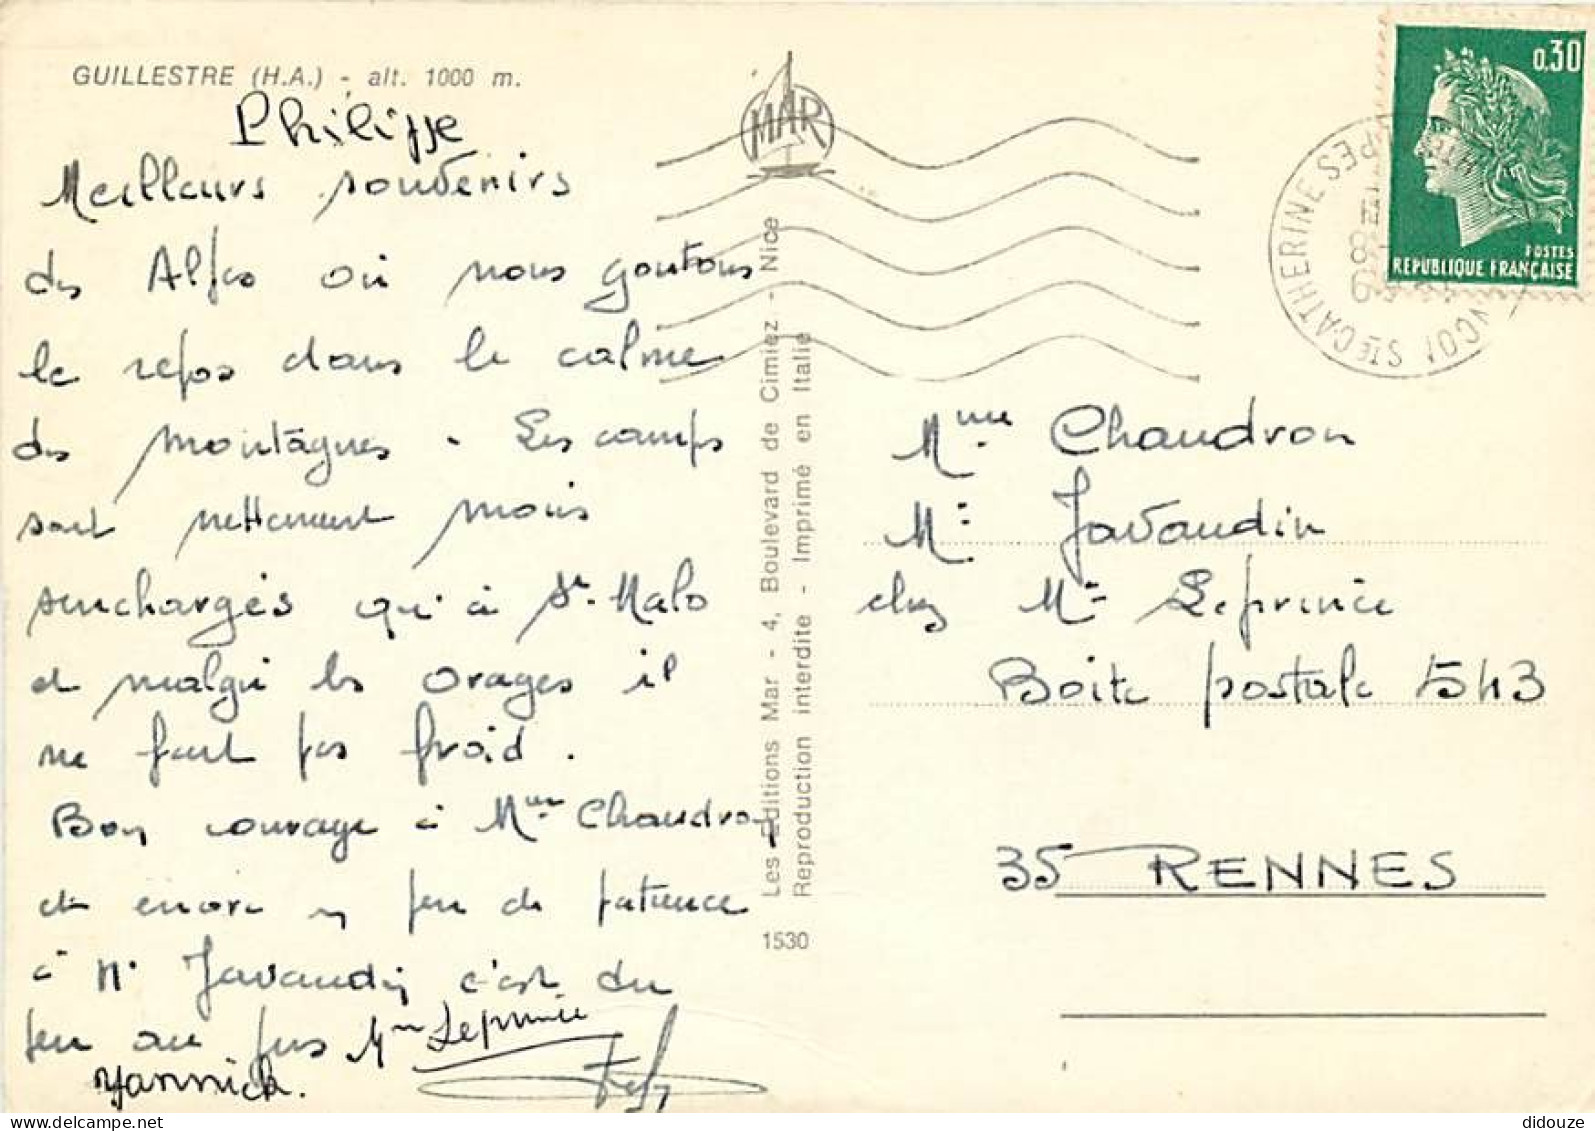 GUILLESTRE (H.A.) - alt. 1000 m.
Philippe
Meilleurs souvenirs
des Alpes où nous goutons
le repos dans le calme
des montagnes. Les camps
sont nettement moins
surchargés qu'à St. Malo
et malgré les orages il
ne fait pas froid.
Bon courage à Mme Chaudron
et encore un peu de patience
à Mr Javaudin c'est du
feu au fus
Mme Leprince
Yannick.
MAR
Les Editions Mar - 4, Boulevard de Cimiez - Nice
Reproduction interdite - Imprimé en Italie
1530
0.30
POSTES
REPUBLIQUE FRANÇAISE
STE CATHERINE
Mme Chaudron
Mr Javaudin
chez Mr Leprince
Boite postale 543
35 RENNES
didouze
delcampe.net